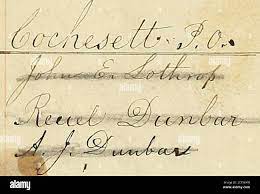 Cochesett P.O.
John E. Lothrop
Reuel Dunbar
A. J. Dunbar
alamy